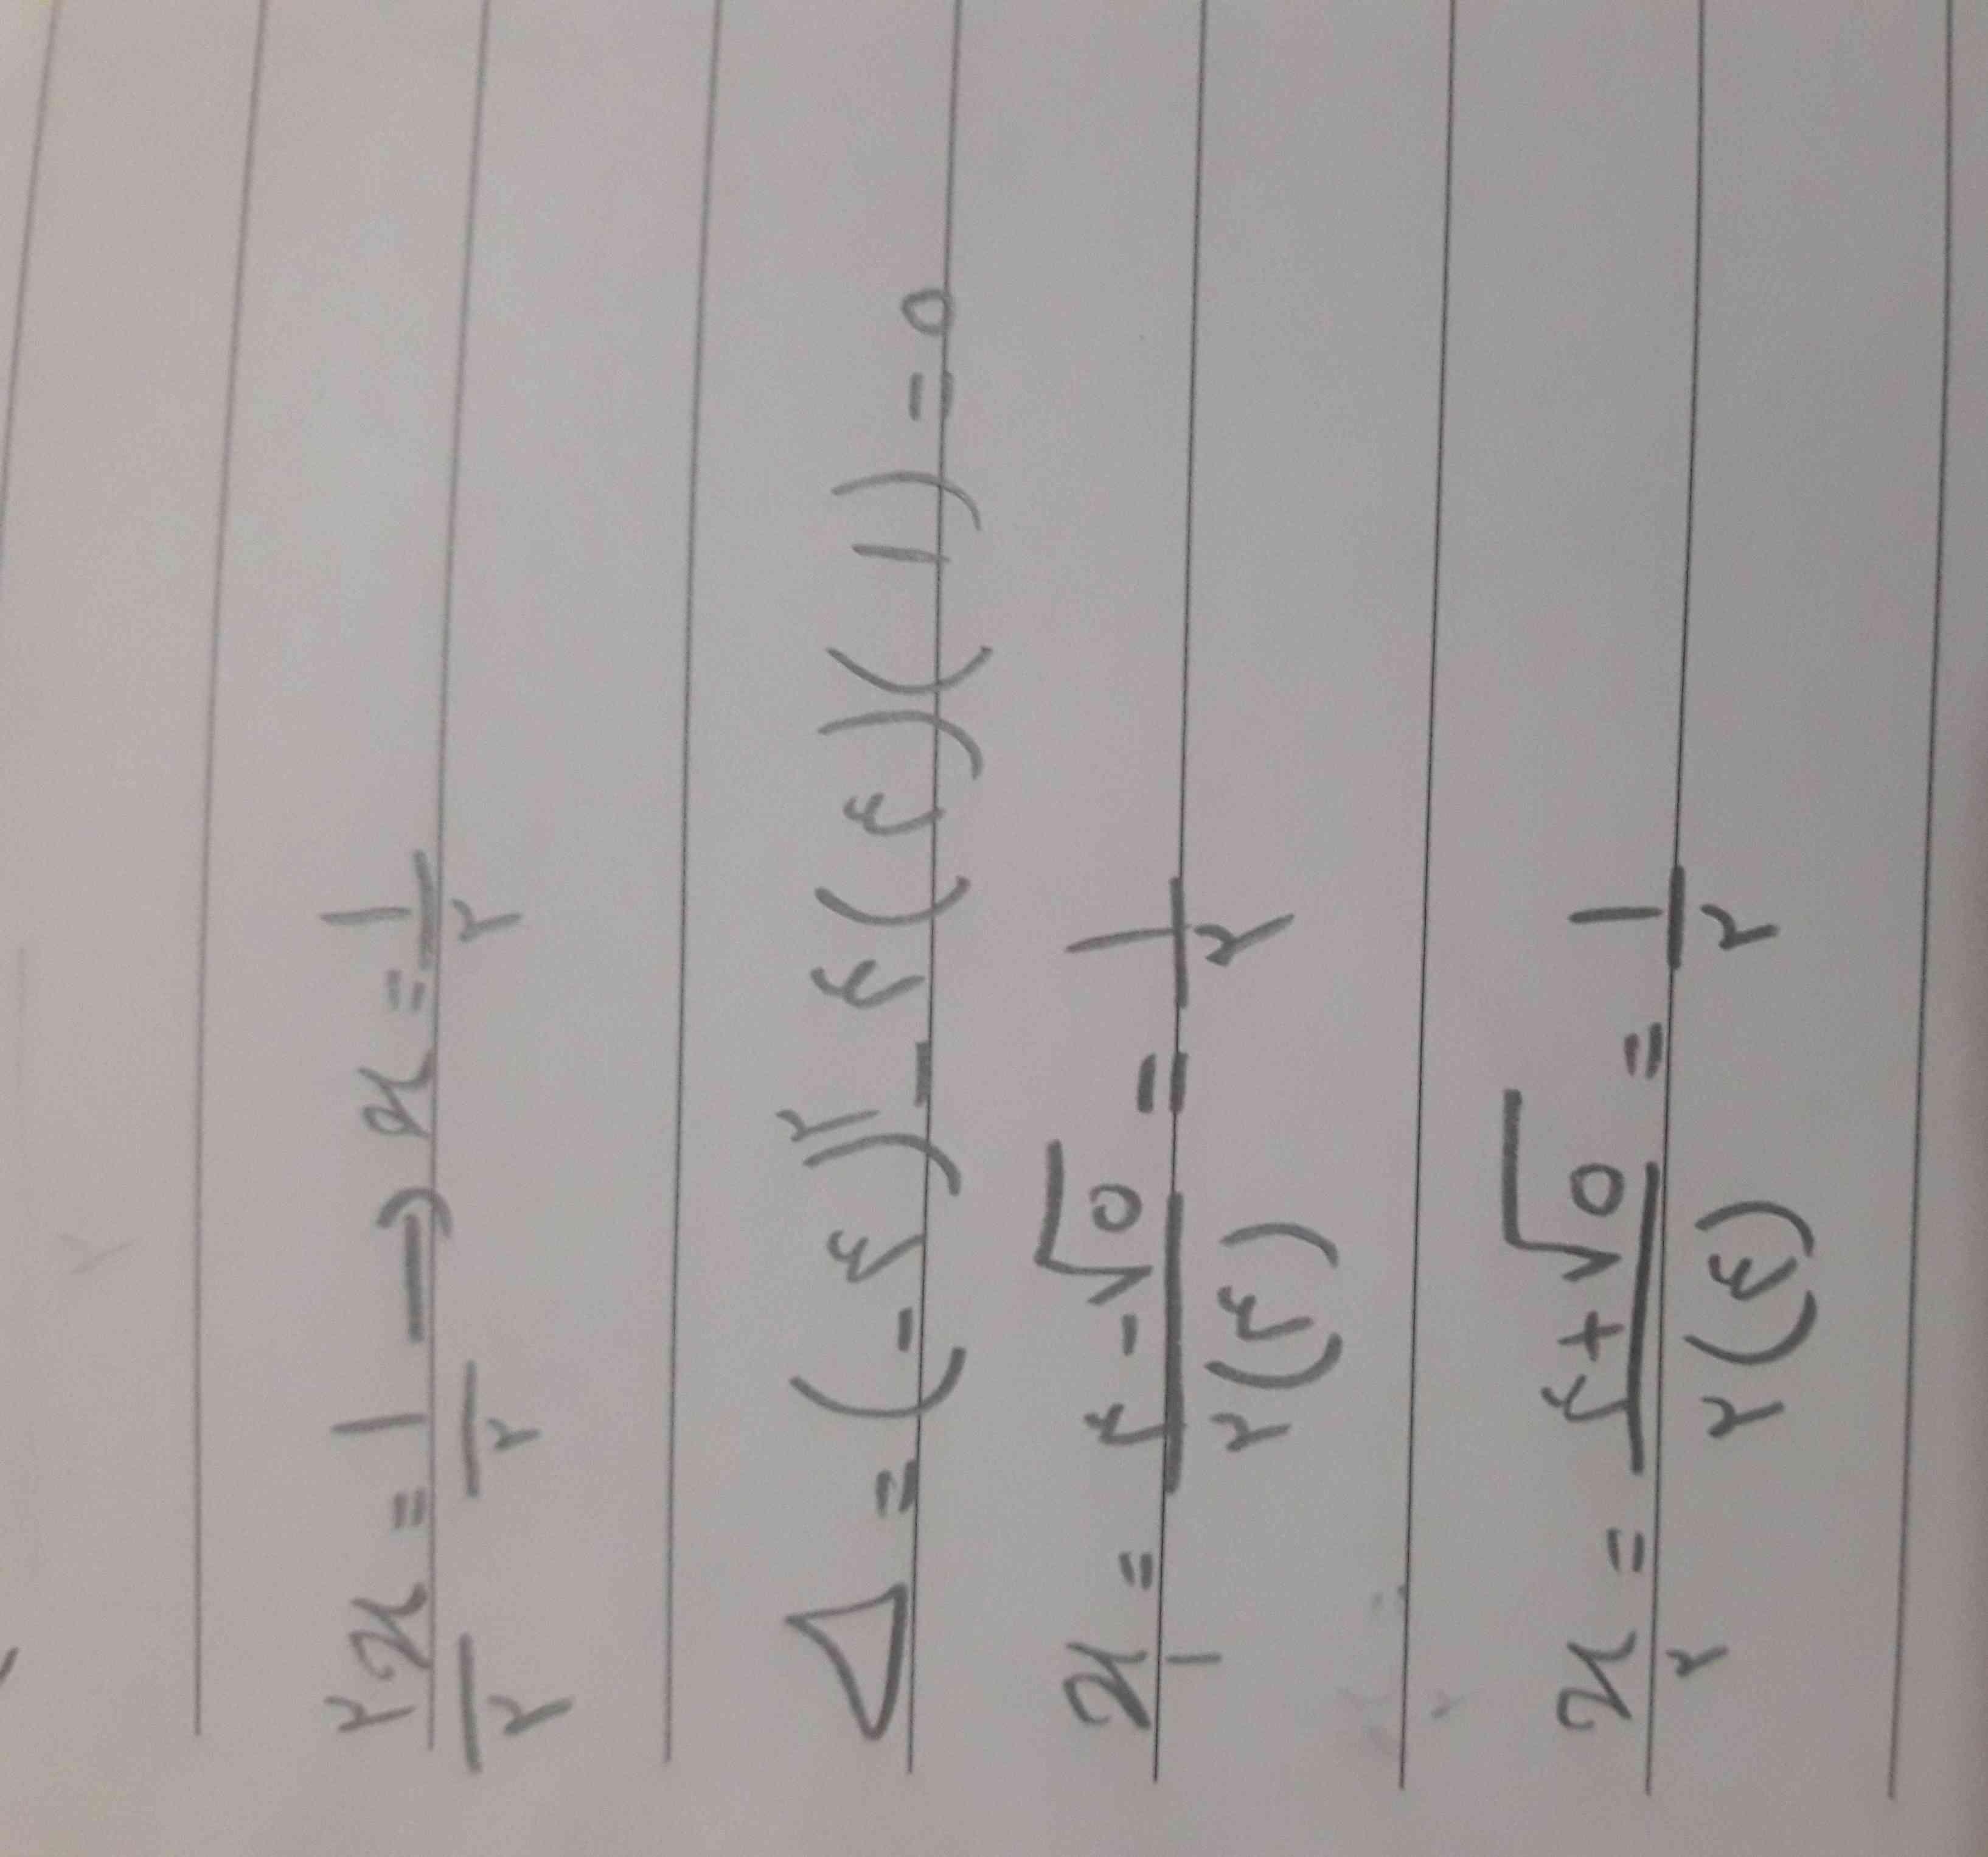 ۲x/۲ = ۱/۲ → x = ۱/۲
Δ = (-۴)^۲ - ۴(۴)(۱) = ۰
x_۱ = (۴ - √۰)/(۲(۴)) = ۱/۲
x_۲ = (۴ + √۰)/(۲(۴)) = ۱/۲